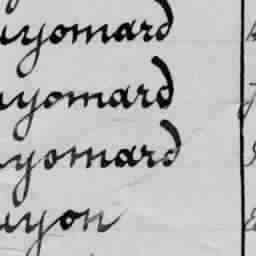 uyomard
uyomard
uyomard
uyon